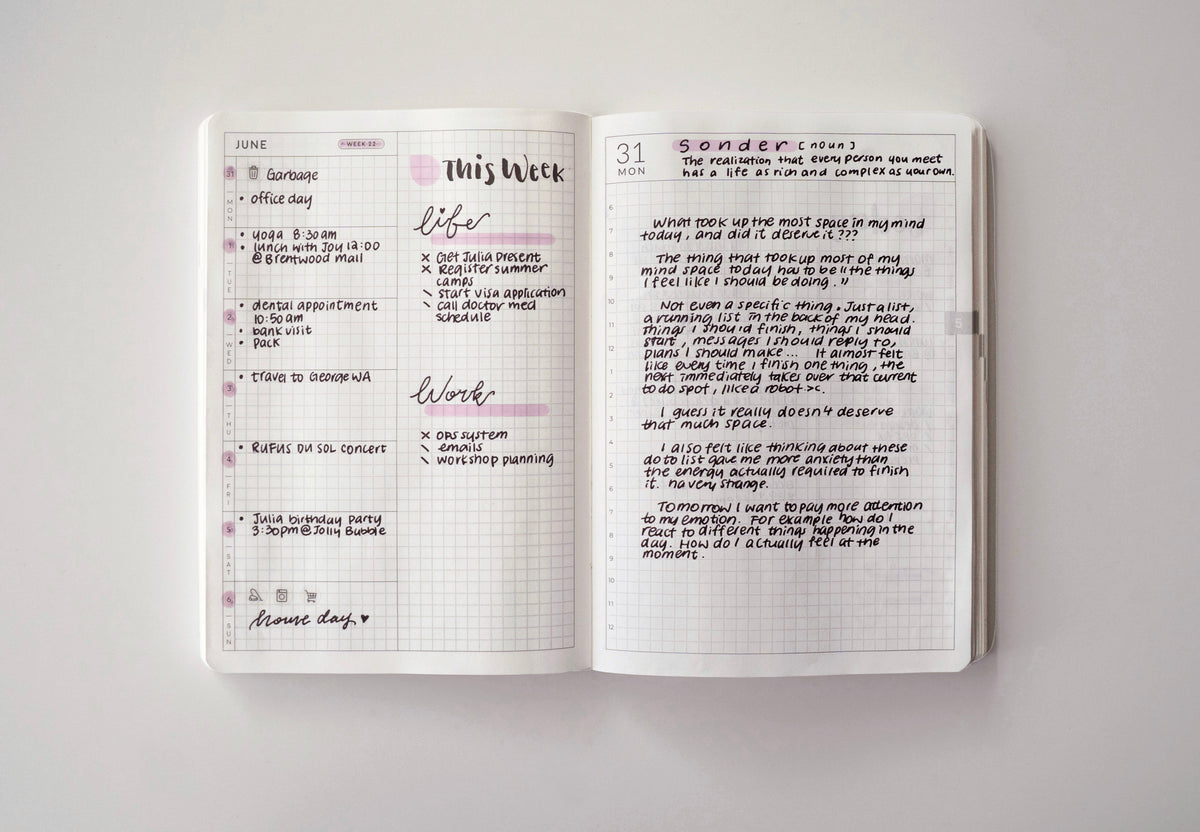 JUNE
WEEK 22
31
MON
Garbage
• office day
1
TUE
• yoga 8:30am
• lunch with Joy 12:00
@Brentwood mall
2
WED
• dental appointment
10:50am
• bank visit
• pack
3
THU
• travel to George WA
4
FRI
• RUFUS DU SOL concert
5
SAT
• Julia birthday party
3:30pm@Jolly Bubble
6
SUN
house day ♥
This Week
life
× Get Julia present
× Register summer
camps
\ start visa application
\ call doctor med
schedule
Work
× OPS system
\ emails
\ workshop planning
31
MON
Sonder [noun]
The realization that every person you meet
has a life as rich and complex as your own.
6
7
8
9
10
11
12
1
2
3
4
5
6
7
8
9
10
11
12
What took up the most space in my mind
today, and did it deserve it ???
The thing that took up most of my
mind space today has to be "the things
I feel like I should be doing."
Not even a specific thing. Just a list,
a running list in the back of my head.
Things I should finish, things I should
start, messages I should reply to,
plans I should make... It almost felt
like every time I finish one thing, the
next immediately takes over that current
to do spot, like a robot >:c.
I guess it really doesn't deserve
that much space.
I also felt like thinking about these
do to list gave me more anxiety than
the energy actually required to finish
it. ha very strange.
Tomorrow I want to pay more attention
to my emotion. For example how do I
react to different things happening in the
day. How do I actually feel at the
moment.
5